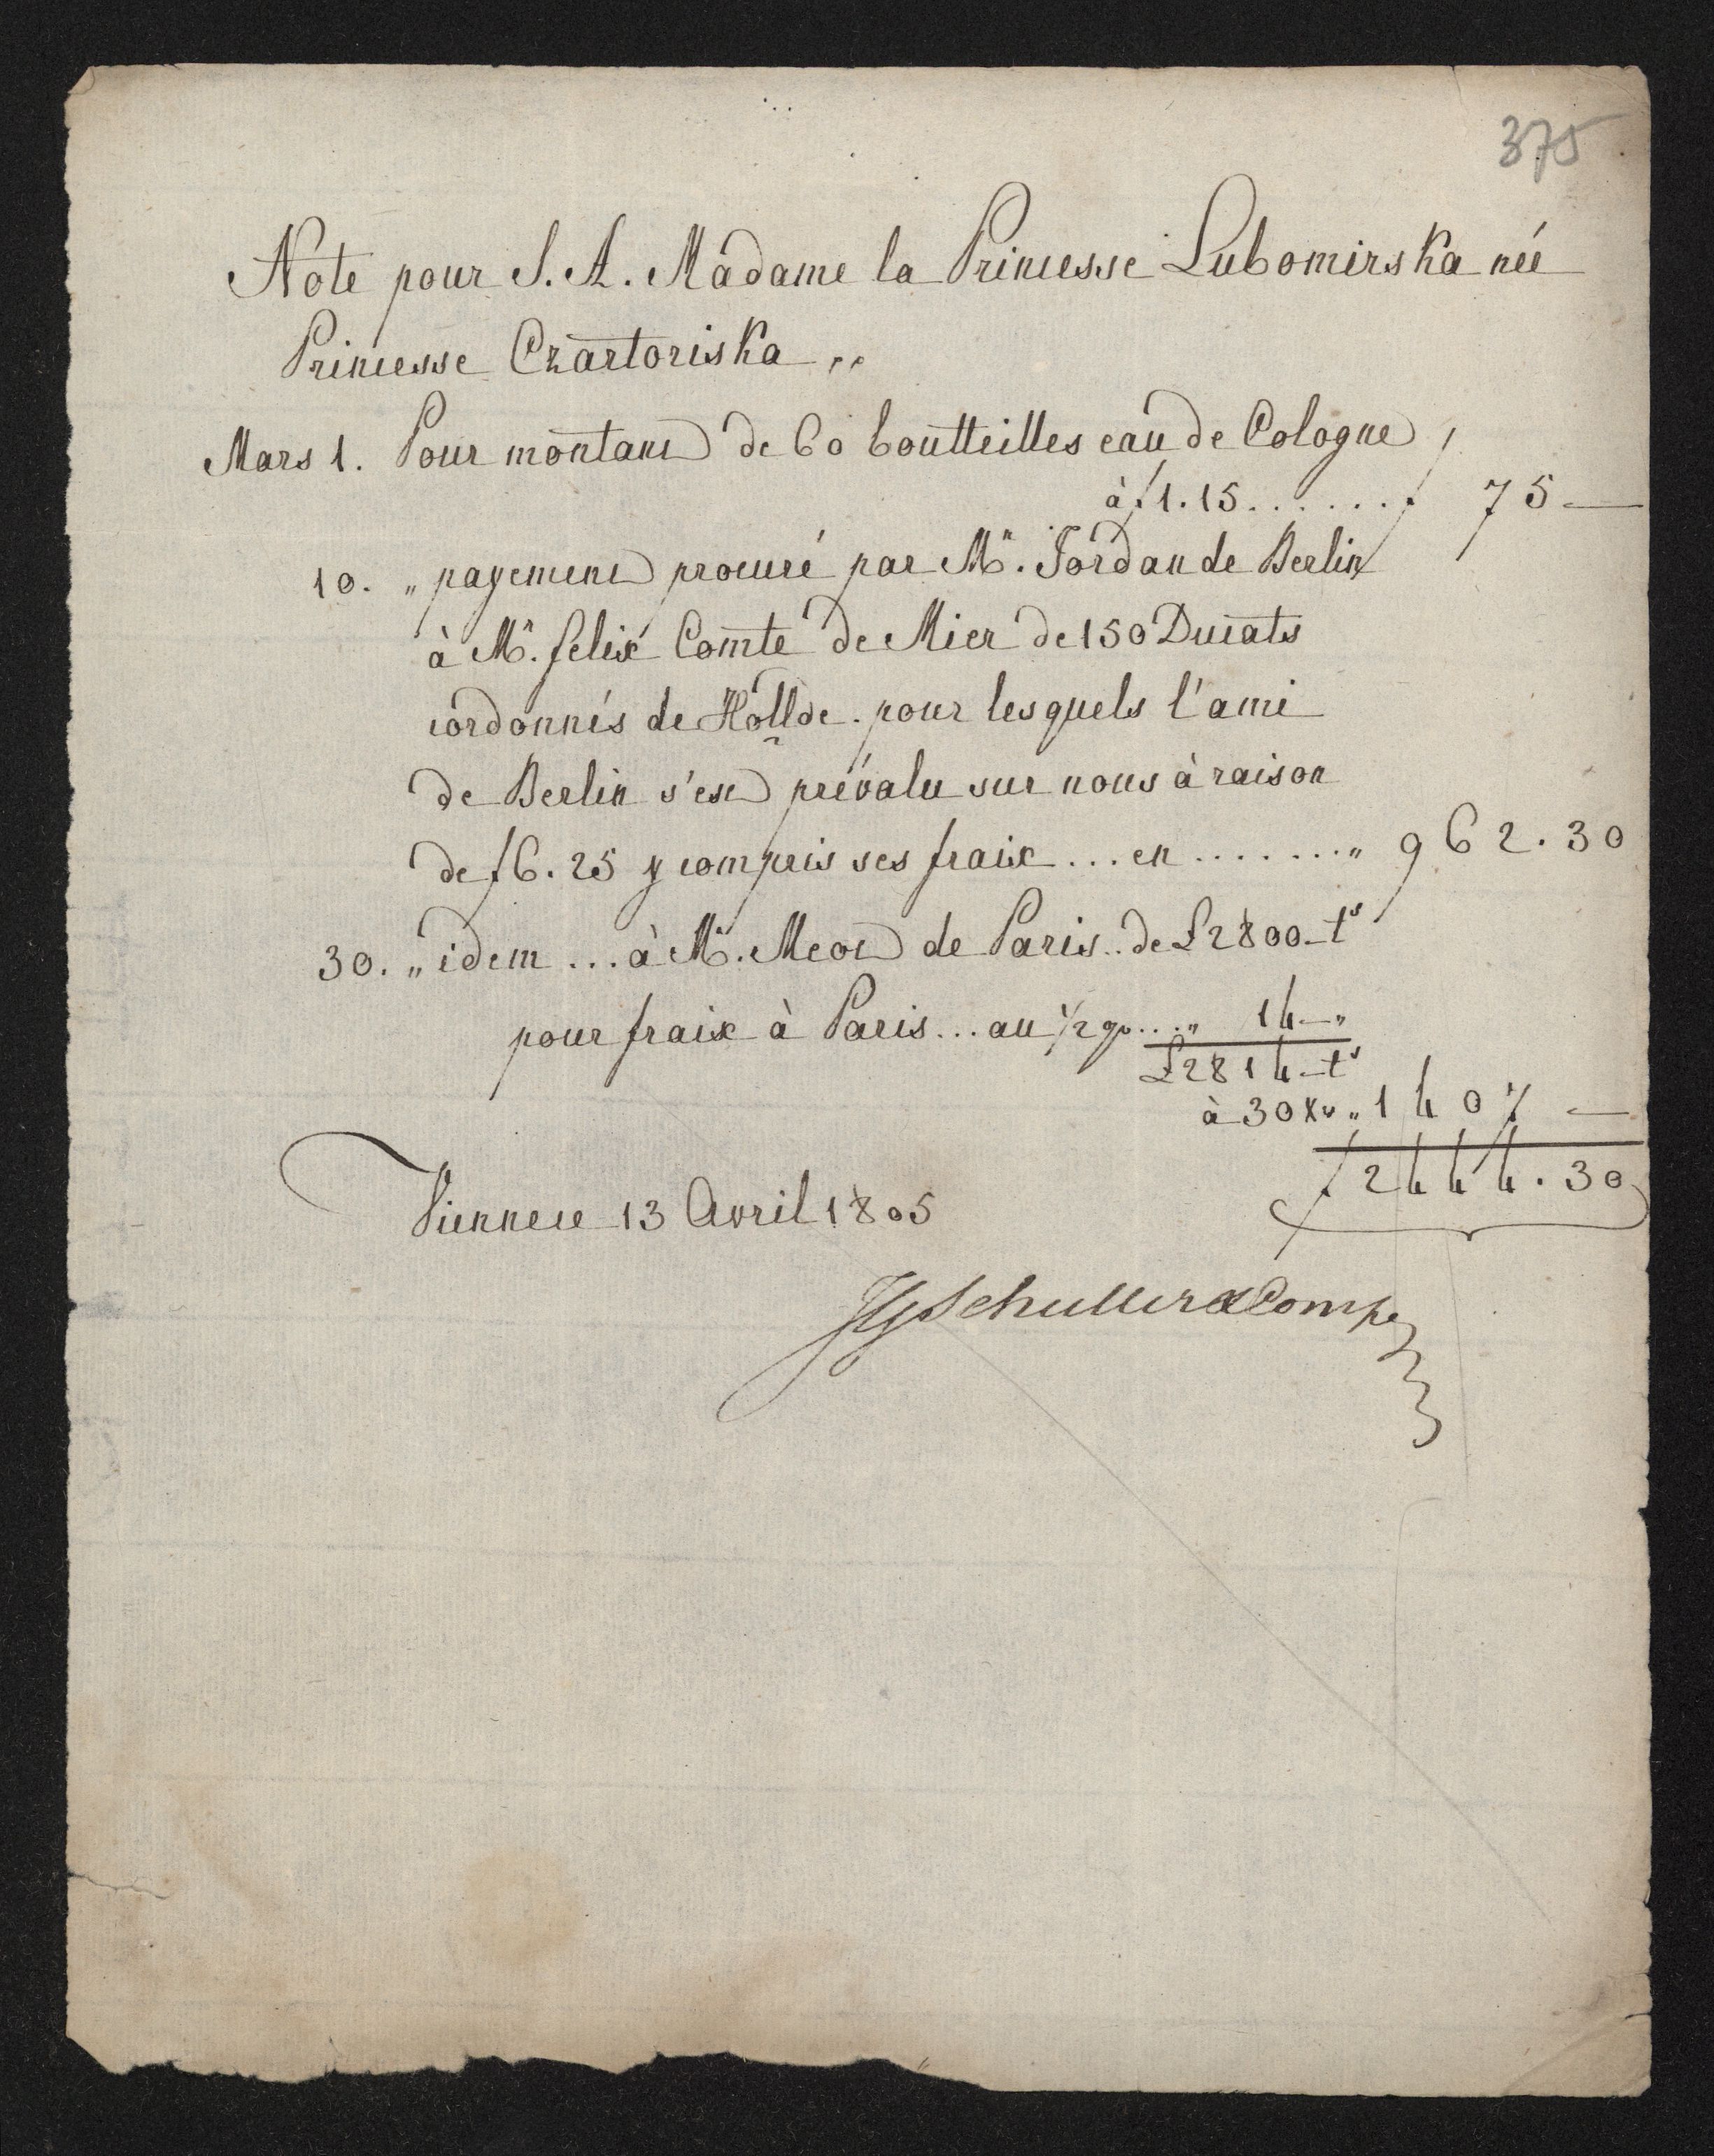 375
Note pour S. A. Madame la Princesse Lubomirska née
Princesse Czartoriska „
Mars 1. Pour montant de 60 boutteilles eau de Cologne
à f 1.15 . . . . . . f 75 —
10. „ payement procuré par Mr. Jordan de Berlin
à Mr. felix Comte de Mier de 150 Ducats
cordonnés de Hollde. pour lesquels l'ami
de Berlin s'est prévalu sur nous à raison
de f 6.25 y compris ses fraix ... en . . . . . . . „ 962.30
30. „ idem ... à Mr. Meot de Paris .. de £ 2800 - ts
pour fraix à Paris ... au ½ % . . . „ 14 - „
£ 2814 - ts
à 30 Xr „ 1407 —
f 2444.30
Vienne ce 13 Avril 1805
JG Schuller & Comp